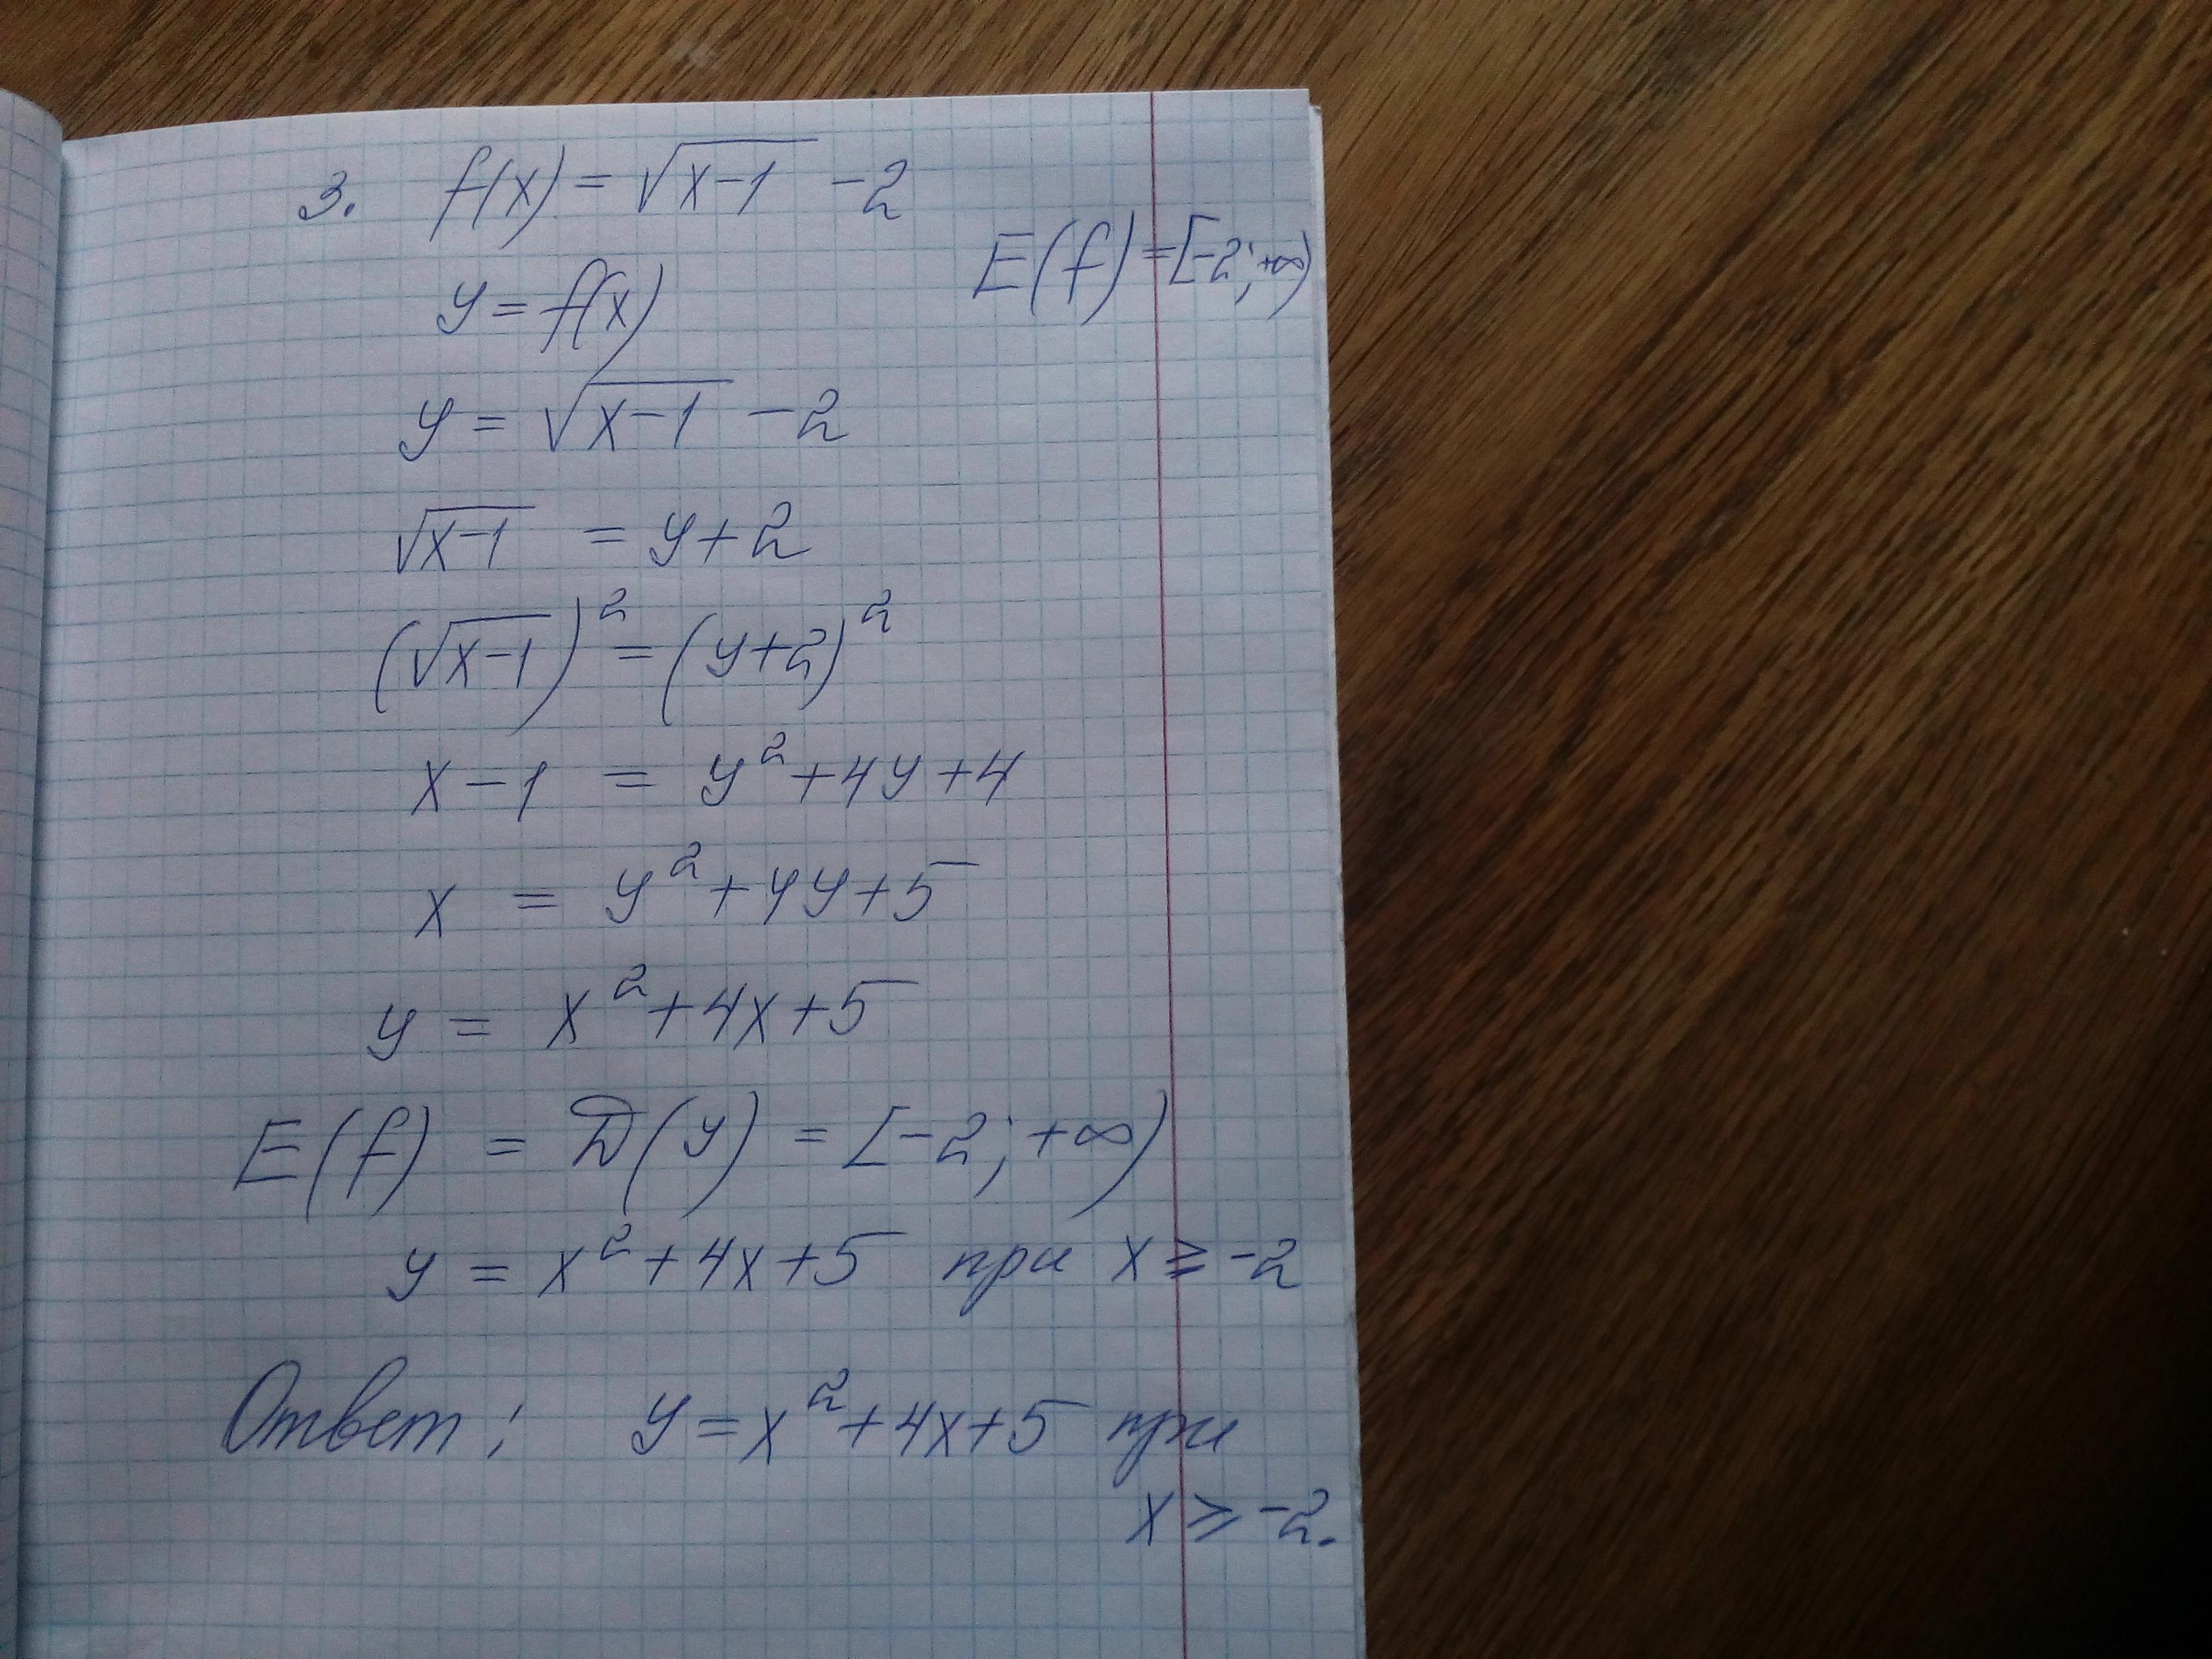 3. f(x) = √(x-1) -2
E(f) = [-2; +∞)
y = f(x)
y = √(x-1) -2
√(x-1) = y+2
(√(x-1))² = (y+2)²
x-1 = y²+4y+4
x = y²+4y+5
y = x²+4x+5
E(f) = D(y) = [-2; +∞)
y = x²+4x+5 при x ≥ -2
Ответ: y = x²+4x+5 при
x ≥ -2.